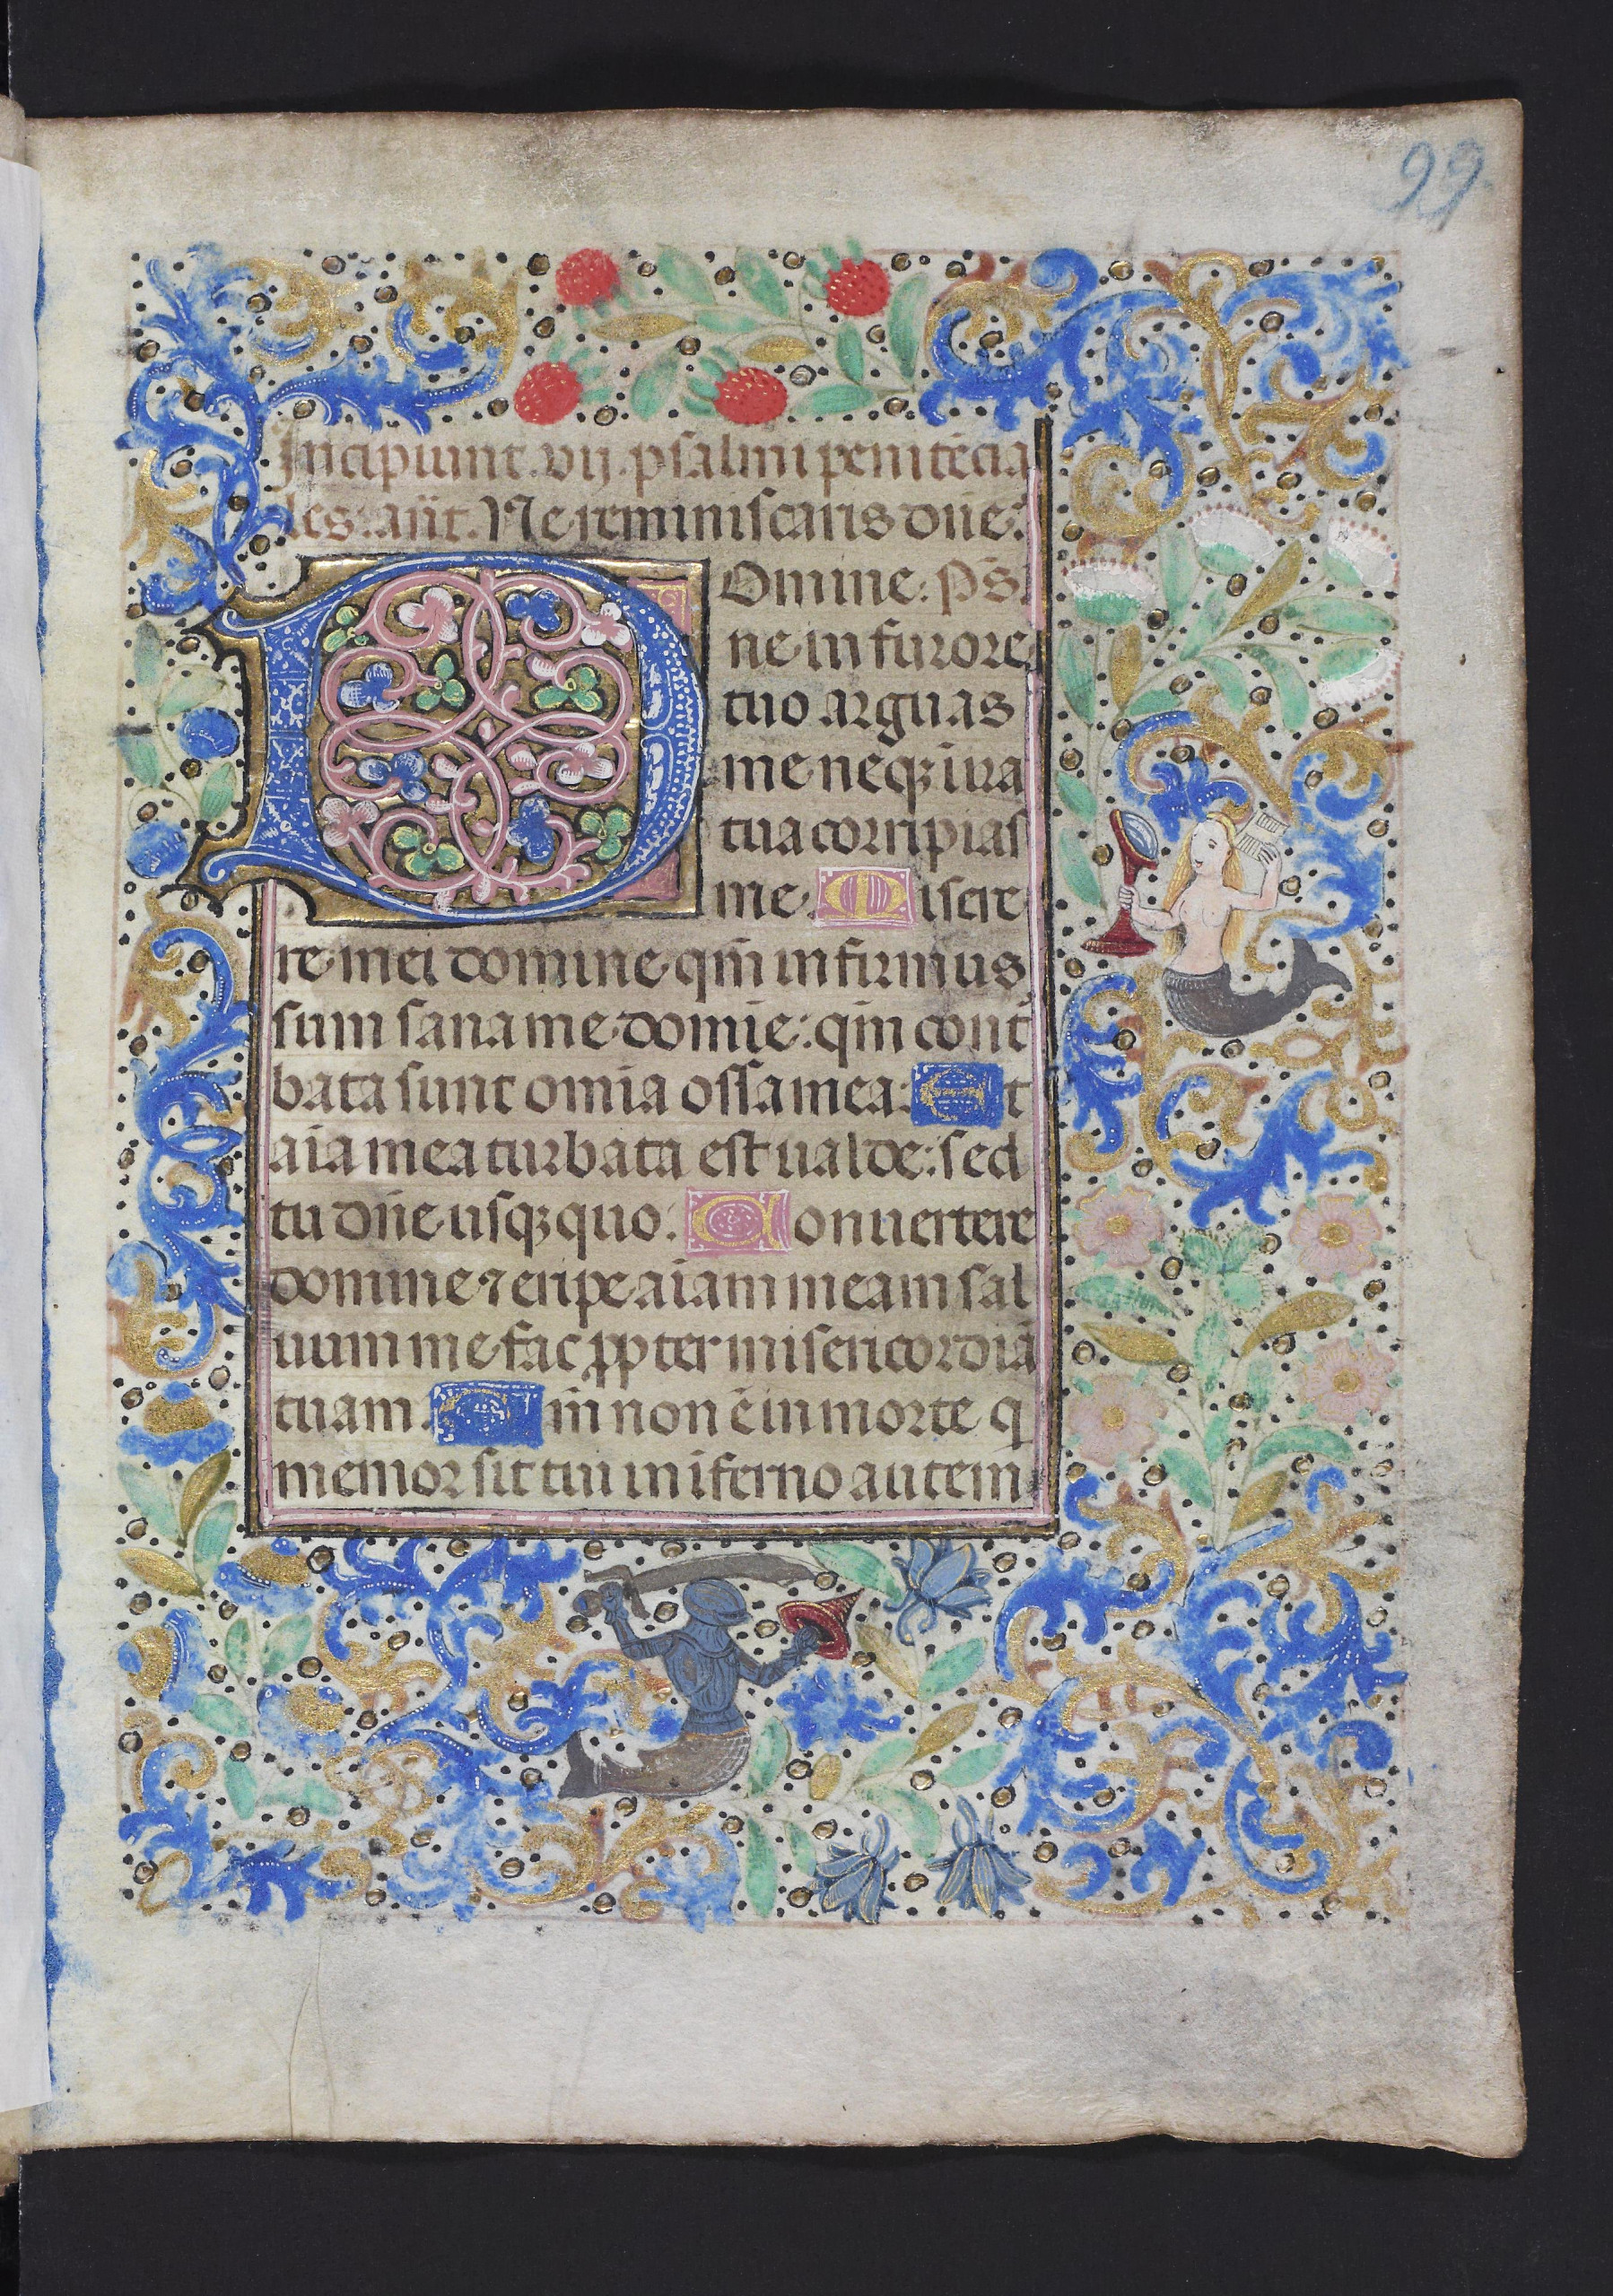 99
Incipiunt .vij. psalmi penitẽcia
les: añt. Ne reminiscaris dñe:
Domine: p̃s.
ne in furore
tuo arguas
me neqꝫ ira
tua corripias
me. Misere
re mei domine qm̃ infirmus
sum sana me domĩe: qm̃ contͥ
bata sunt om̃ia ossa mea: Et
aĩa mea turbata est ualde: sed
tu dñe usqꝫ quo: Conuertere
domine ⁊ eripe aĩam meam sal
uum me fac ꝓpter misericordiã
tuam. Qm̃ non ẽ in morte q̃
memor sit tui in ĩferno autem